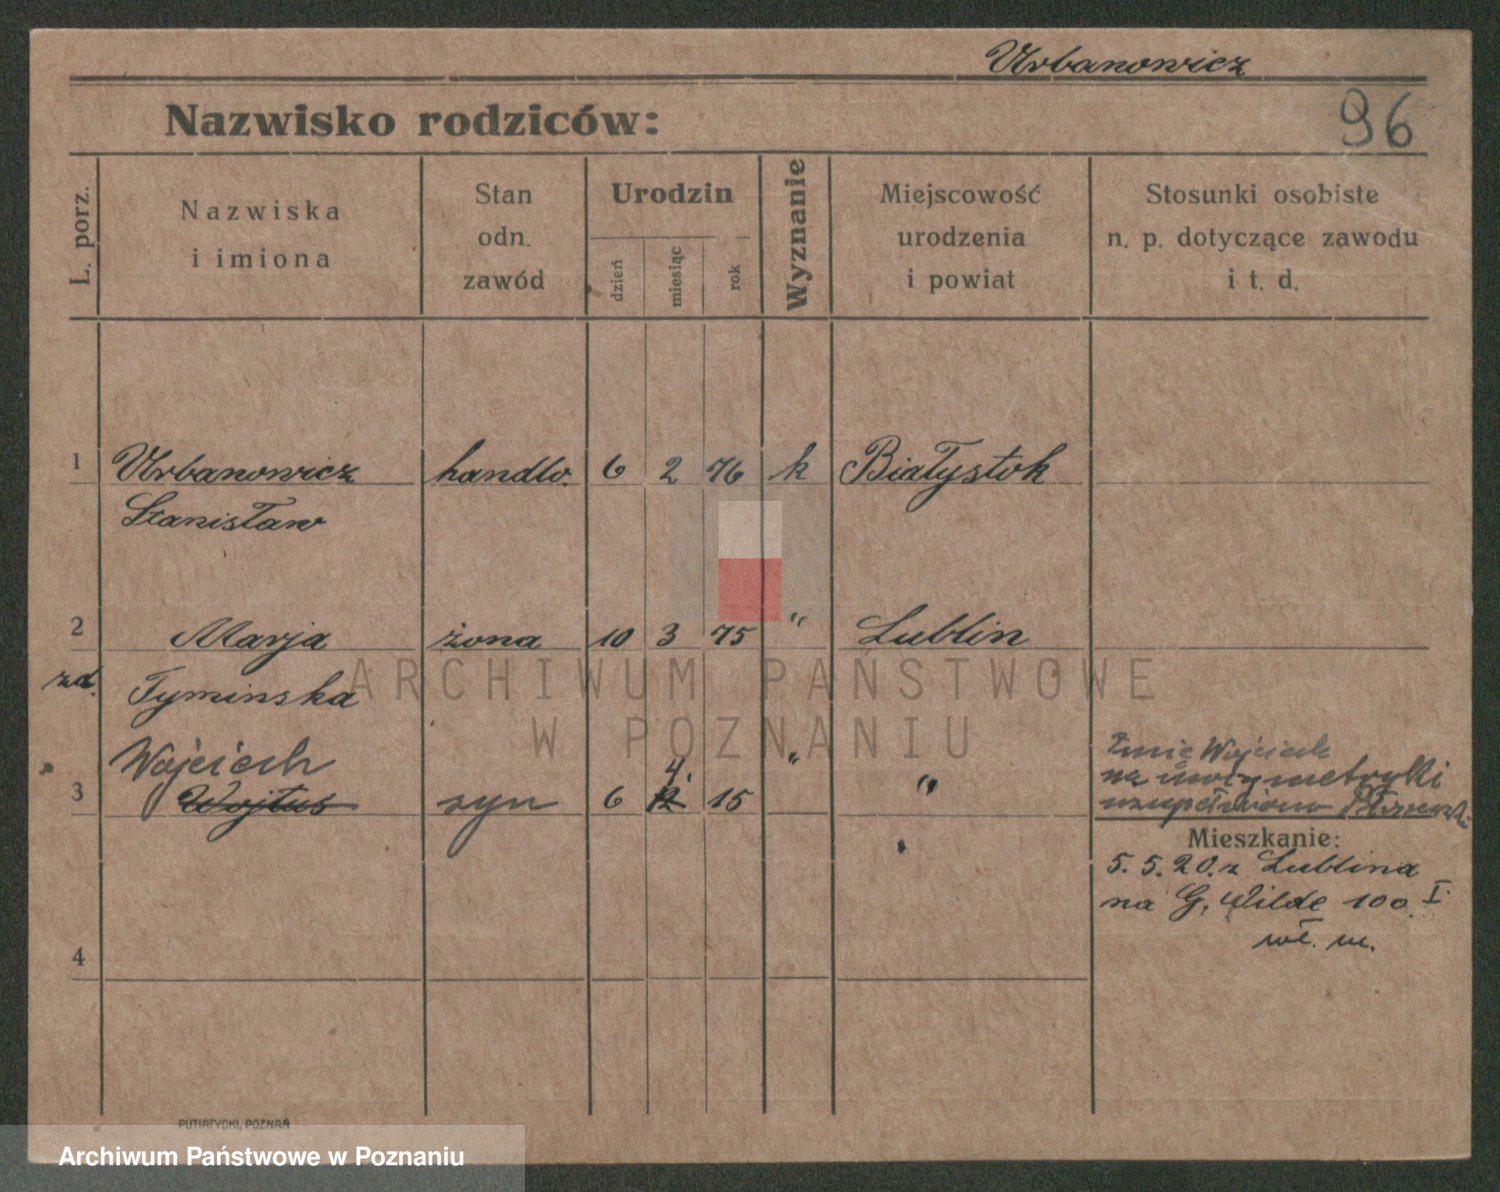 Urbanowicz
Nazwisko rodziców:
96
L. porz.
Nazwiska
i imiona
Stan
odn.
zawód
Urodzin
dzień
miesiąc
rok
Wyznanie
Miejscowość
urodzenia
i powiat
Stosunki osobiste
n. p. dotyczące zawodu
i t. d.
1 Urbanowicz handlo. 6 2 76 k Białystok
Stanisław
2 Marja żona 10 3 75 " Lublin
zd. Tyminska
ARCHIWUM PAŃSTWOWE
W POZNANIU
Wojciech 4. "
3 Wojtuś syn 6 12 15 "
Imię Wojciech
na metryki
uzupełniono
Mieszkanie:
5. 5. 20. z Lublina
na G. Wilde 100 I.
wł. m.
4
PUTIATYCKI, POZNAŃ
Archiwum Państwowe w Poznaniu